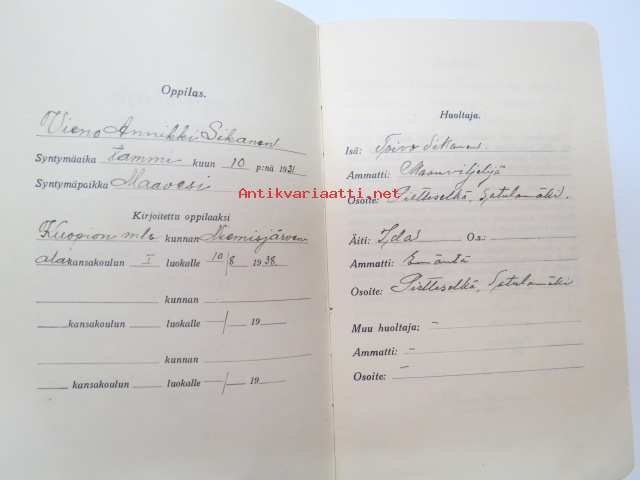 Oppilas.
Vieno Annikki Sikanen
Syntymäaika tammi kuun 10 p:nä 1931
Syntymäpaikka Maavesi
Antikvariaatti.net
Kirjoitettu oppilaaksi
Kuopion mlk kunnan Niemisjärven
alakansakoulun I luokalle 10/8 1938.
kunnan
kansakoulun luokalle / 19
kunnan
kansakoulun luokalle / 19
Huoltaja.
Isä: Toivo Sikanen
Ammatti: Maanviljelijä
Osoite: Putteselkä,
Äiti: Ida O.s:
Ammatti: Emäntä
Osoite:
Muu huoltaja: –
Ammatti: –
Osoite: –